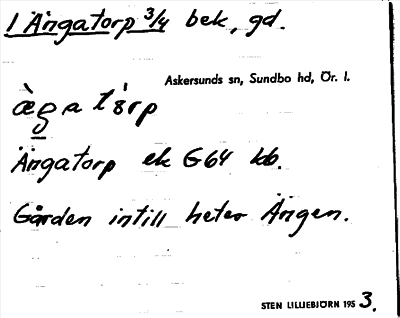 1 Ängatorp 3/4 bek, gd.
Askersunds sn, Sundbo hd, Ör. l.
Ängatorp ek G64 kb.
Gården intill heter Ängen.
STEN LILLIEBJÖRN 1953.